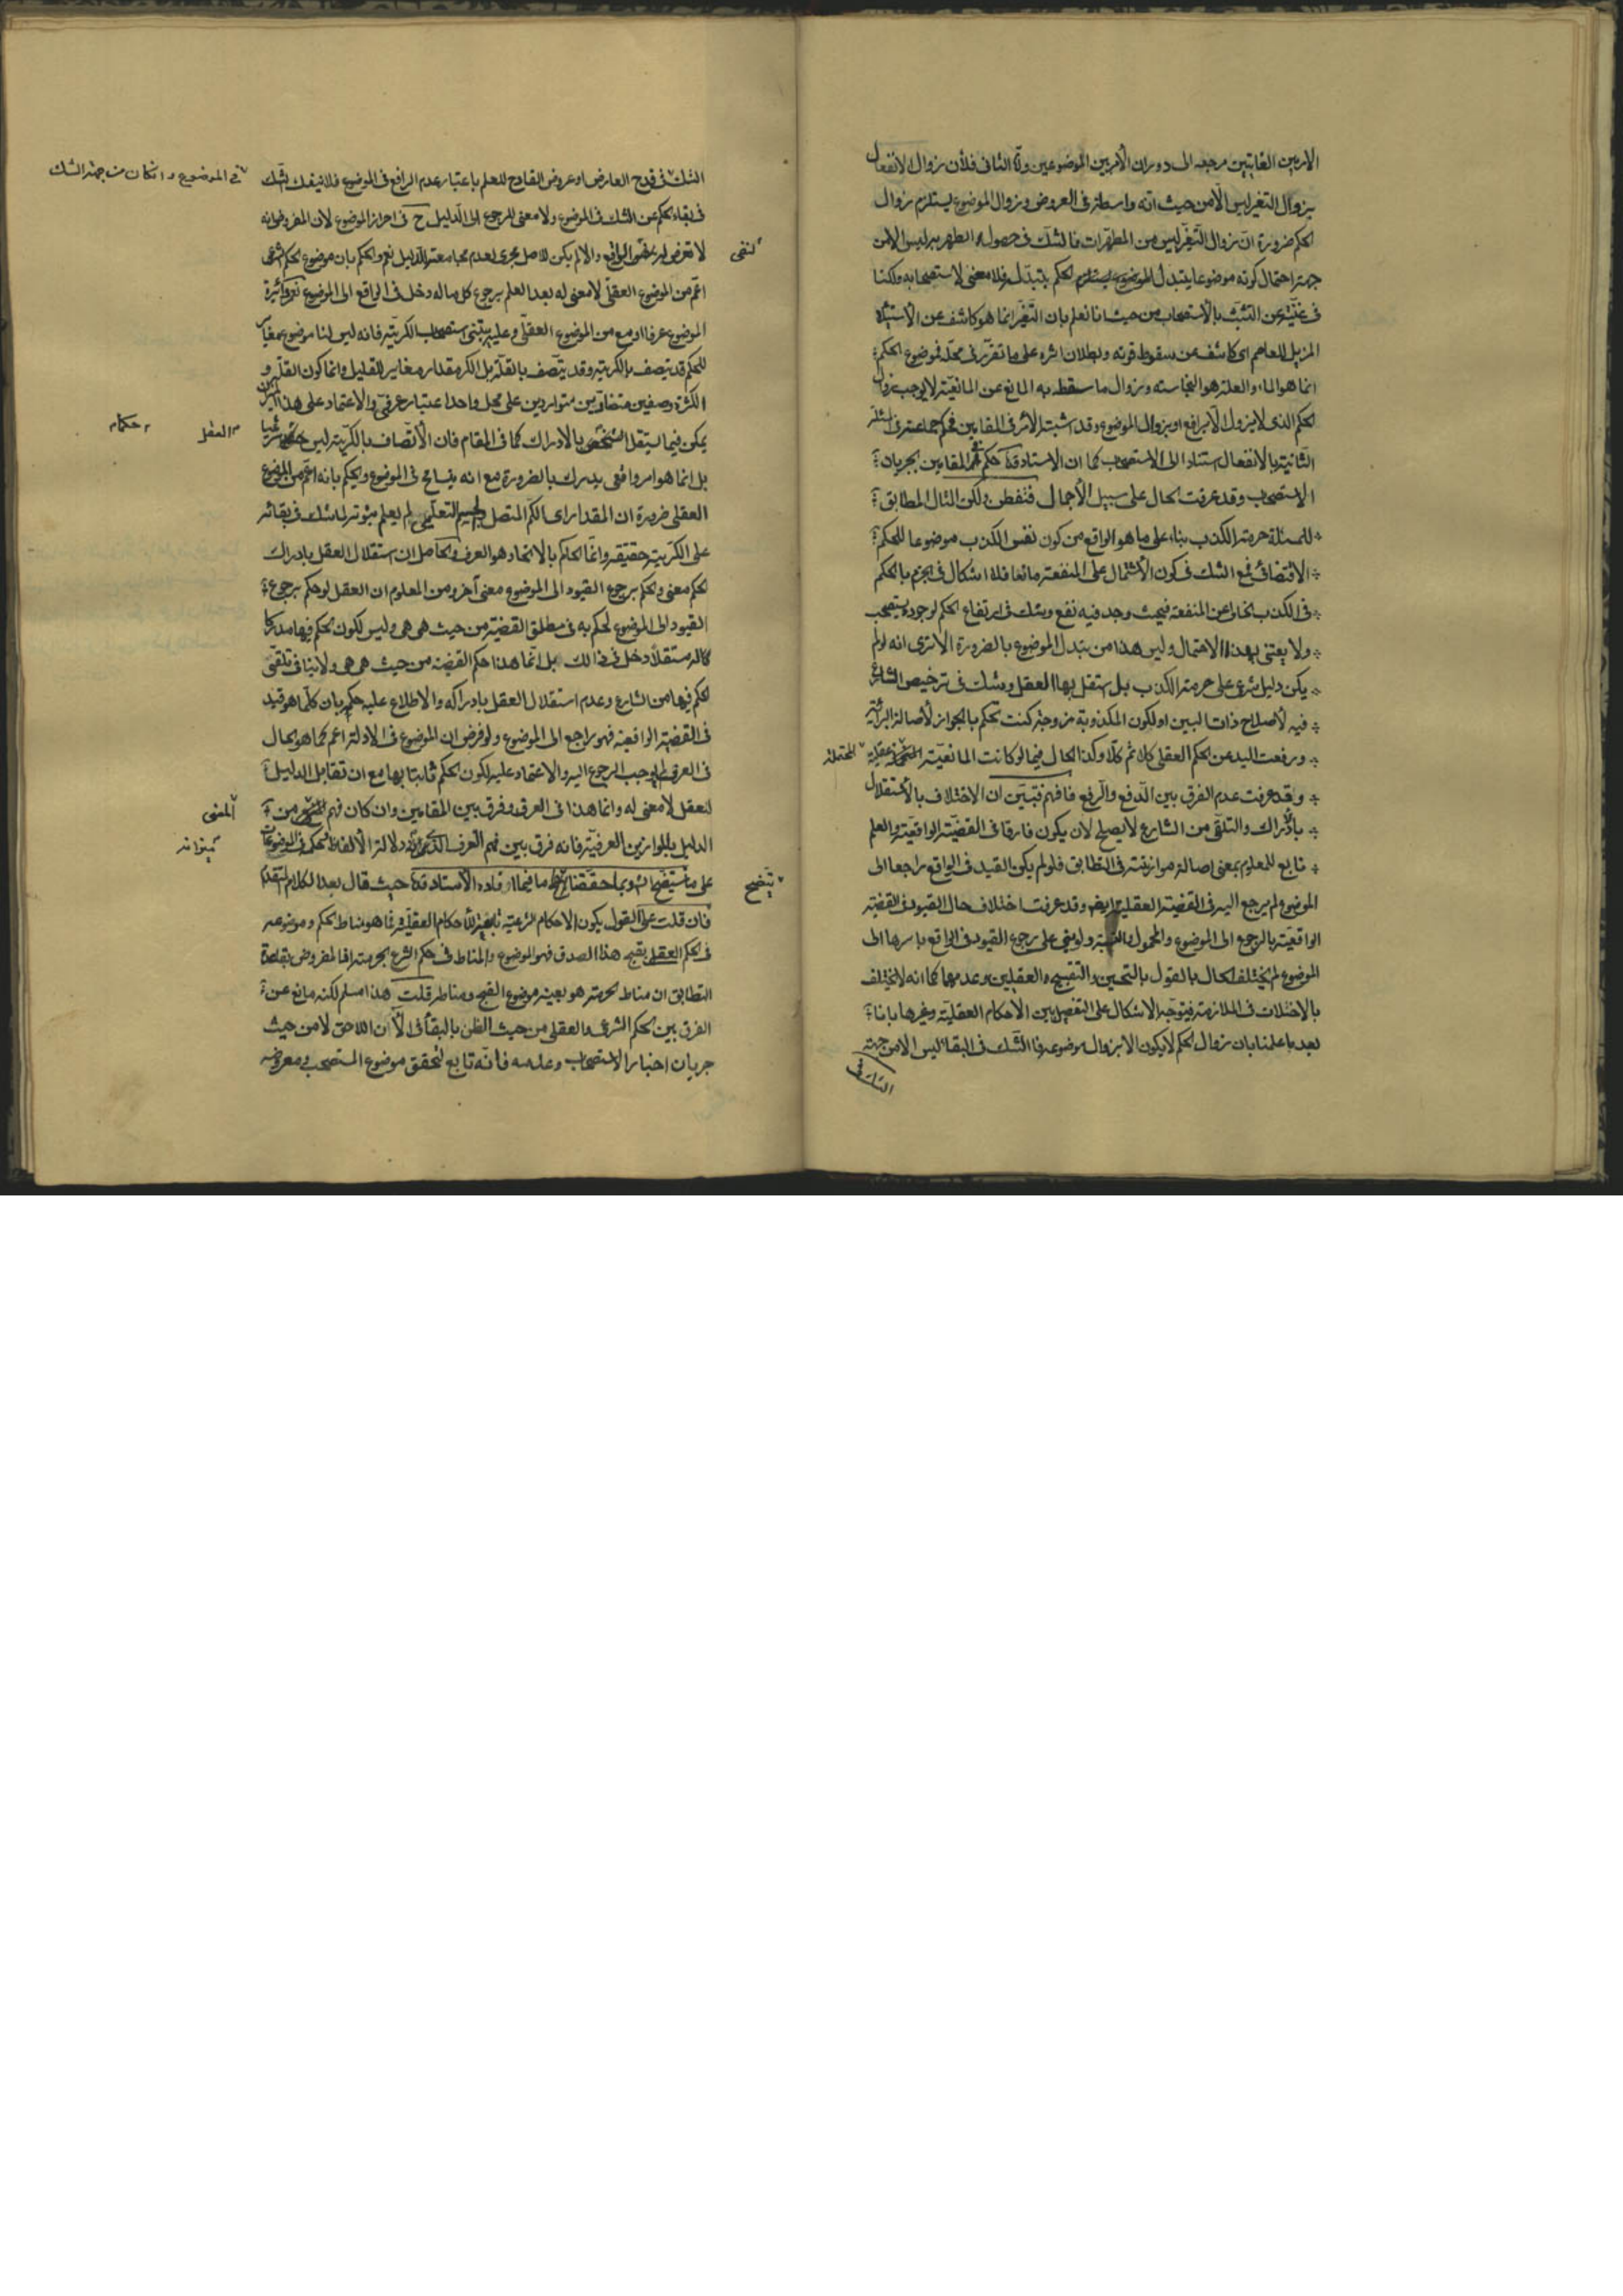 الامرين الغايتين مرجعه الى دوران الأمر بين الموضوعين وأما الثاني فلأن زوال الانفعال
بزوال التغير ليس الا من حيث انه واسطة في العروض وزوال الموضوع يستلزم زوال
الحكم ضرورة ان زوال التغير ليس من المطهرات فالشك في حصول الطهر به ليس الا من
جهة احتمال كونه موضوعا يتبدل الموضوع يستلزم الحكم بتبدله فلا معنى لاستصحابه ولكنا
في غنية عن التشبث بالاستصحاب من حيث انا نعلم بان التغير انما هو كاشف عن
المزيل للعاصم اي كاشف عن سقوط قوته وبطلان اثره على ما تقرر في محله فموضوع الحكم
انما هو الماء والعلة هو النجاسة وزوال ما سقط به المانع عن المانعية لا يوجب زوال
الحكم الذي لا يزول الا برافع او بزوال الموضوع وقد اشبت الأمر في المقامين فحكم جماعة في مسئلة
الثانية بالانفعال استنادا الى الاستصحاب كما ان الاستاد قده حكم في المقامين بجريان
الاستصحاب وقد عرفت الحال على سبيل الأجمال فتفطن ولكن المثال المطابق
للمسئلة حرمة الكذب بناء على ما هو الواقع من كون نفس الكذب موضوعا للحكم
الاقتضائي فمع الشك في كون الأشتمال على المنفعة مانعا فلا اشكال في الجزم بالحكم
في الكذب الخالي عن المنفعة فحيث وجد فيه نفع وشك في ارتفاع الحكم لوجوده يستصحب
ولا يعتنى بهذا الاحتمال وليس هذا من تبدل الموضوع بالضرورة الا ترى انه لو لم
يكن دليل شرعي على حرمة الكذب بل استقل بها العقل وشك في ترخيص الشارع
فيه لأصلاح ذات البين او لكون المكذوبة زوجة كنت تحكم بالجواز لأصالة البرائة
ورفعت اليد عن الحكم العقلي كلا ثم كلا وكذا الحال فيما لو كانت المانعية المحتملة عقلية
وقد عرفت عدم الفرق بين الدفع والرفع فافهم فتبين ان الاختلاف بالأستقلال
بالأدراك والتلقي من الشارع لا يصلح لان يكون فارقا في القضية الواقعية والعلم
تابع للمعلوم بمعنى اصالة موازنته في التطابق فلو لم يكن القيد في الواقع راجعا الى
الموضوع لم يرجع اليه في القضية العقلية ايضا وقد عرفت اختلاف حال القيود في القضية
الواقعية بالرجوع الى الموضوع والمحمول والنسبة ولو بنى على رجوع القيود في الواقع باسرها الى
الموضوع لم يختلف الحال بالقول بالتحسين والتقبيح العقليين وعدمهما كما انه لا يختلف
بالاختلاف في الملازمة فيتوجه الاشكال على التفصيل بين الأحكام العقلية وغيرها بانا
بعد ما علمنا بان زوال الحكم لا يكون الا بزوال موضوعه فالشك في البقاء ليس الا من جهة
الشك في
الشك في قدح العارض او عروض القادح للعلم باعتبار عدم الرافع في الموضوع فلا ينفك الشك
في الموضوع وان كان من جهة الشك
في بقاء الحكم عن الشك في الموضوع ولا معنى للرجوع الى الدليل ح في احراز الموضوع لان المفروض انه
لا تعرض له الواقع والا لم يكن للاصل مجرى لعدم مجامعته للدليل نعم والحكم بان موضوع الحكم الشرعي
لنفي
اعم من الموضوع العقلي لا معنى له بعد العلم برجوع كل ماله دخل في الواقع الى الموضوع نعم دائرة
الموضوع عرفا اوسع من الموضوع العقلي وعليه يبتنى استصحاب الكرية فانه ليس لنا موضوع مغاير
للحكم قد يتصف بالكرية وقد يتصف بالقلة بل الكر مقدار مغاير للقليل وانما كون القلة و
الكثرة وصفين متضادين متواردين على محل واحد اعتبار عرفي والاعتماد على هذا
يمكن فيما يستقل بالادراك كما في المقام فان الأتصاف بالكرية ليس حكما شرعيا
العقل
احكام
بل انما هو امر واقعي يدرك بالضرورة مع انه يتسامح في الموضوع ويحكم بانه اعم من الموضوع
العقلي ضرورة ان المقدار اي الكم المتصل والجسم التعليمي لم يعلم ثبوته لما شك في بقائه
على الكرية حقيقة وانما الحاكم بالاتحاد هو العرف والحاصل ان استقلال العقل بادراك
الحكم معنى والحكم برجوع القيود الى الموضوع معنى آخر ومن المعلوم ان العقل لو حكم برجوع
القيود الى الموضوع لحكم به في مطلق القضية من حيث هي هي وليس لكون الحكم فيها مدركا
كاله مستقلا دخل في ذالك بل انما هذا حكم القضية من حيث هي هي ولا ينافي تلقي
الحكم فيها من الشارع وعدم استقلال العقل بادراكه والاطلاع عليه حكمه بان كلما هو قيد
في القضية الواقعية فهو راجع الى الموضوع ولو فرض ان الموضوع في الادلة اعم كما هو الحال
في العرف لم يوجب الرجوع اليه والاعتماد عليه لكون الحكم ثابتا بها مع ان تقابل الدليل
للعقل لا معنى له وانما هذا في العرف وفرق بين المقامين وان كان فهم المعنى من
الدليل بالموازين العرفية فانه فرق بين فهم العرف الذي دلالة الألفاظ
كميزانه
على ما سيتضح ان شاء الله وبما حققنا يتضح ما فيما افاده الأستاد قده حيث قال بعد الكلام المتقدم
فان قلت على القول بكون الاحكام الشرعية تابعة للأحكام العقلية فما هو مناط الحكم وموضوعه
في الحكم العقلي بقبح هذا الصدق فهو الموضوع والمناط في حكم الشرع بحرمته اذ المفروض بقاعدة
التطابق ان مناط الحرمة هو بعينه موضوع القبح ومناطه قلت هذا مسلم لكنه مانع عن
الفرق بين الحكم الشرعي والعقلي من حيث الظن بالبقاء في الآن اللاحق لا من حيث
جريان اخبار الاستصحاب وعدمه فانه تابع لتحقق موضوع المستصحب ومعروضه